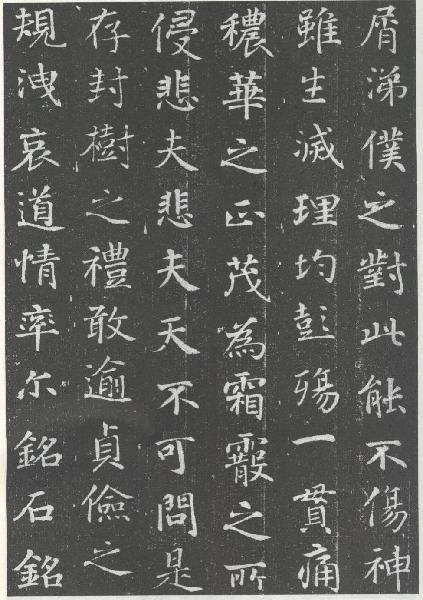 屑涕僕之對此能不傷神
雖生滅理均彭殤一貫痛
穠華之正茂為霜霰之所
侵悲夫悲夫天不可問是
存封樹之禮敢逾貞儉之
規洩哀道情率尒銘石銘